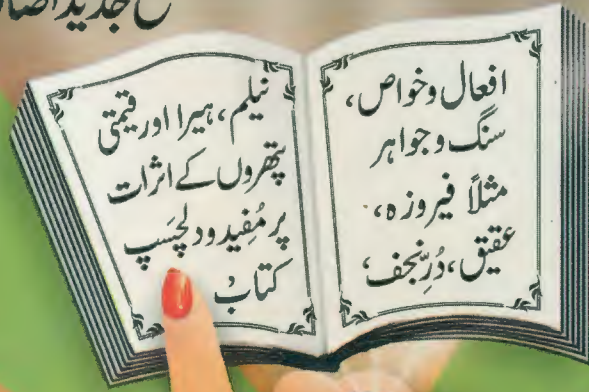 مع جدید اضا
افعال و خواص،
سنگ و جواہر
مثلاً فیروزہ،
عقیق، دُرِّ نجف،
نیلم، ہیرا اور قیمتی
پتھروں کے اثرات
پر مُفید و دلچسَپ
کتابْ